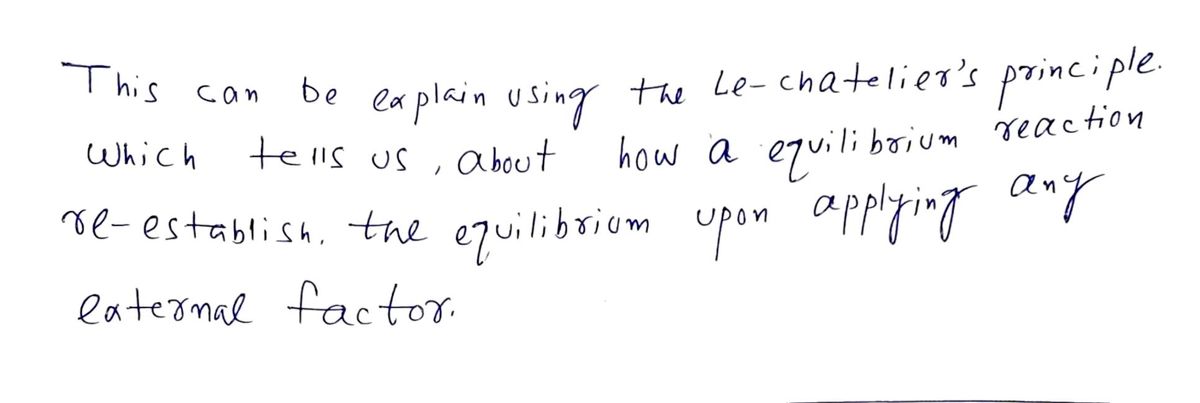 This can be explain using the Le-chatelier's principle.
which tells us, about how a equilibrium reaction
re-establish, the equilibrium upon applying any
external factor.